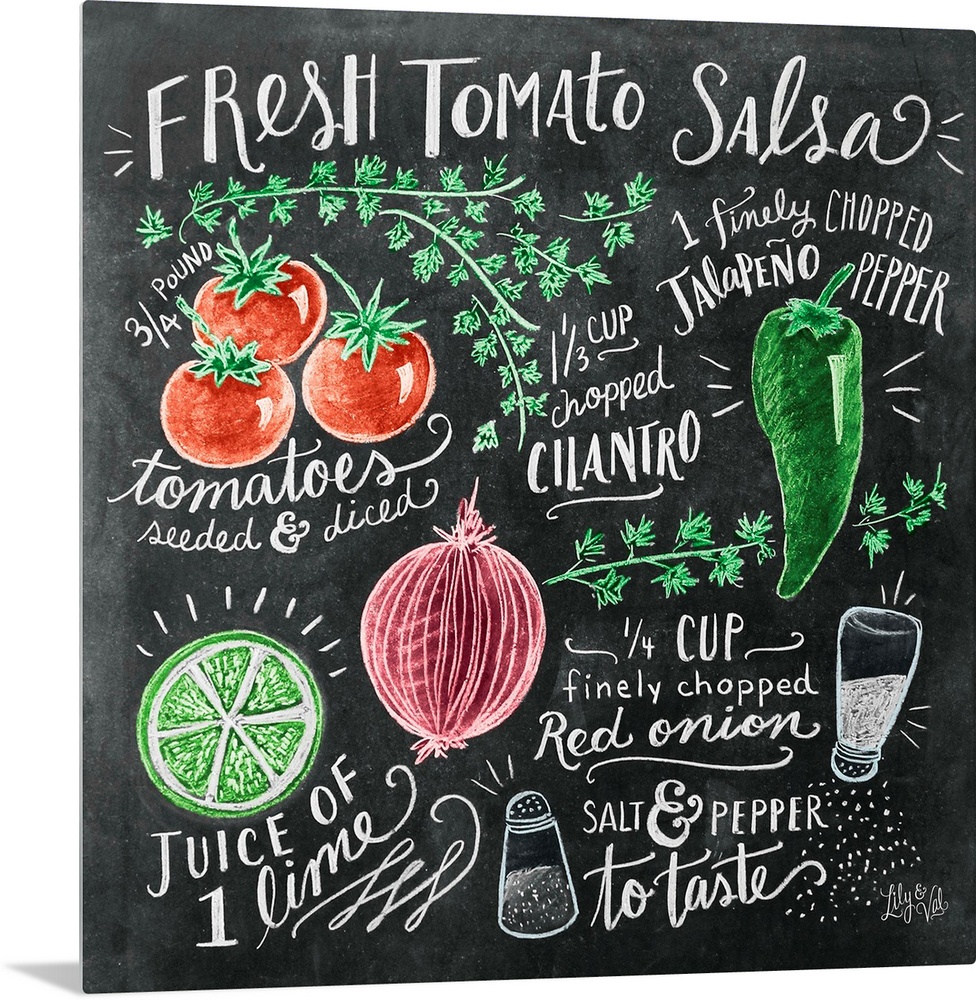 FRESH TOMATO SALSA
3/4 POUND
tomatoes
seeded & diced
1/3 CUP
chopped
CILANTRO
1 finely CHOPPED
JALAPEÑO PEPPER
1/4 CUP
finely chopped
Red onion
JUICE OF
1 lime
SALT & PEPPER
to taste
Lily &
Val